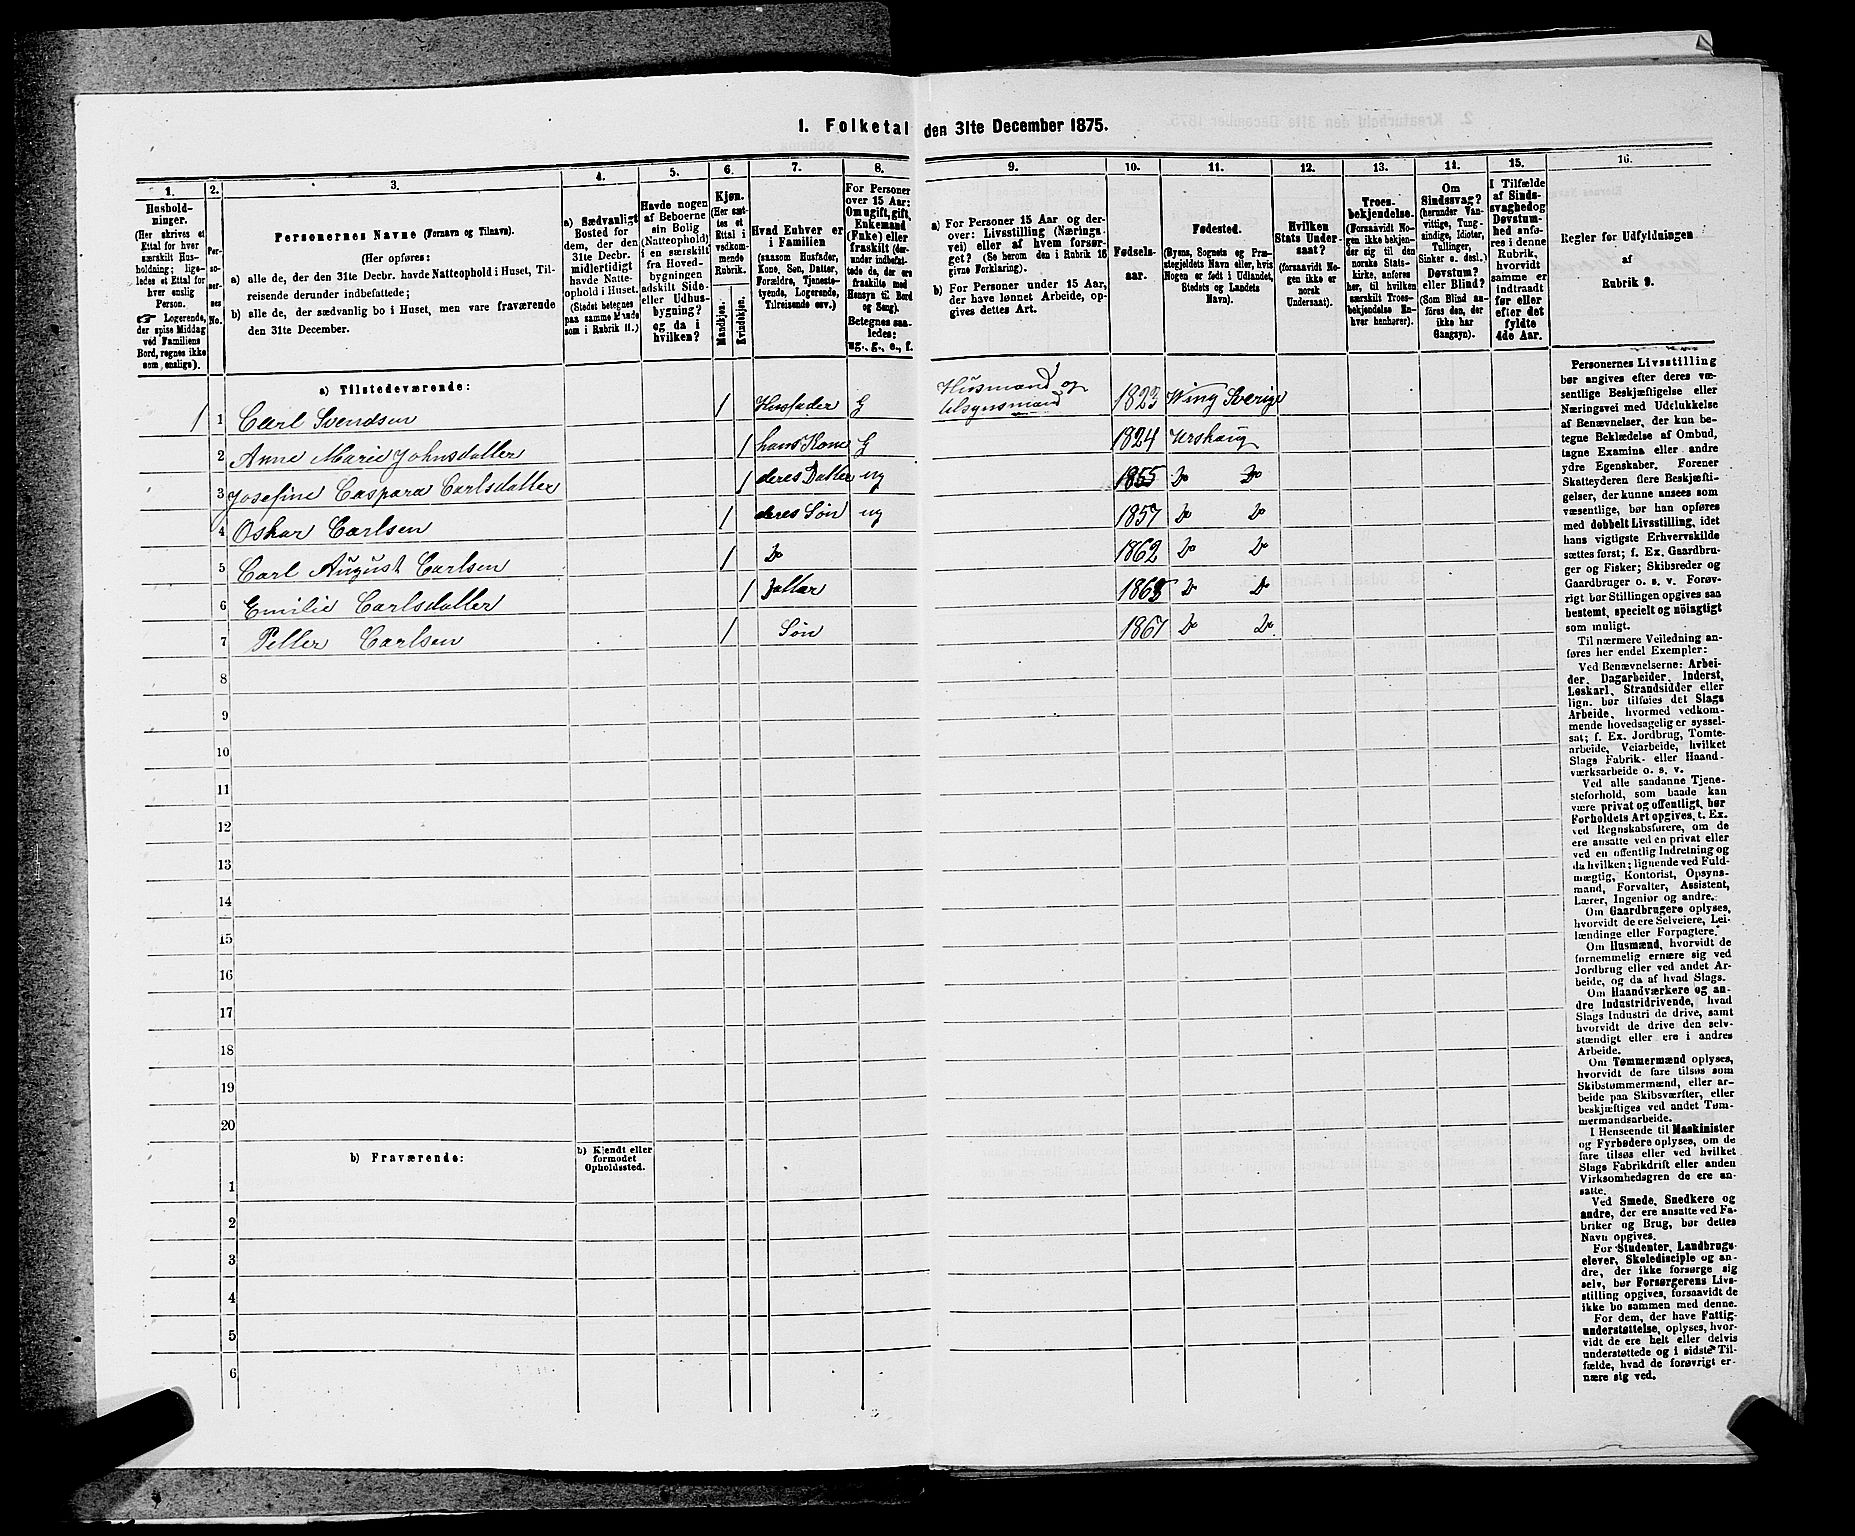 1. Folketal den 31te December 1875.
1. 2. 3. 4. 5. 6. 7. 8. 9. 10. 11. 12. 13. 14. 15. 16.
Hushold-
ninger.
(Her skrives et
Ettal for hver
særskilt Hus-
holdning; lige-
ledes et Ettal for
hver enslig
Person.
☞ Logerende,
der spise Middag
ved Familiens
Bord, regnes ikke
som enslige).
Per-
so-
ner-
nes
No.
Personernes Navne (Fornavn og Tilnavn).
(Her opføres:
a) alle de, der den 31te Decbr. havde Natteophold i Huset, Til-
reisende derunder indbefattede;
b) alle de, der sædvanlig bo i Huset, men vare fraværende
den 31te December.
a) Sædvanligt
Bosted for
dem, der den
31te Decbr.
midlertidigt
havde Natte-
ophold i Huset.
(Stedet betegnes
paa samme Maade
som i Rubrik 11.)
Havde nogen
af Beboerne
sin Bolig
(Natteophold)
i en særskilt
fra Hoved-
bygningen
adskilt Side-
eller Udhus-
bygning?
og da i
hvilken?
Kjøn.
(Her sæt-
tes et
Ettal i
vedkom-
mende
Rubrik.
Mandkjøn.
Kvindekjøn.
Hvad Enhver er
i Familien
(saasom Husfader,
Kone, Søn, Datter,
Forældre, Tjeneste-
tyende, Logerende,
Tilreisende osv.)
For Personer
over 15 Aar:
Om ugift, gift,
Enkemand
(Enke) eller
fraskilt (der-
under indbefat-
tede de, der ere
fraskilte med
Hensyn til Bord
og Seng).
Betegnes saa-
ledes:
ug., g., e., f.
a) For Personer 15 Aar og der-
over: Livsstilling (Nærings-
vei) eller af hvem forsør-
get? (Se herom den i Rubrik 16
givne Forklaring).
b) For Personer under 15 Aar,
der have lønnet Arbeide, op-
gives dettes Art.
Fødsels-
aar.
Fødested.
(Byens, Sognets og Præ-
stegjeldets Navn eller, hvis
Nogen er født i Udlandet,
Stedets og Landets
Navn).
Hvilken
Stats Under-
saat?
(forsaavidt No-
gen ikke er
norsk
Undersaat).
Troes-
bekjendelse.
(Forsaavidt No-
gen ikke bekjen-
der sig til den
norske Stats-
kirke, anføres
her, til hvilken
særskilt Troes-
bekjendelse En-
hver henhører).
Om
Sindssvag?
(herunder Van-
vittige, Tung-
sindige, Idioter,
Tullinger,
Sinker o. desl.)
Døvstum?
eller Blind?
(Som Blind an-
føres den, der
ikke har
Gangsyn).
I Tilfælde
af Sinds-
svaghed og
Døvstum-
hed anfø-
res i denne
Rubrik,
hvorvidt
samme er
indtraadt
før eller
efter det
fyldte
4de Aar.
Regler for Udfyldningen
af
Rubrik 9.
a) Tilstedeværende:
1 1 Carl Svendsen 1 Husfader G Husmand og
1823 Wing Sverige
2 Anne Marie Johnsdatter 1 hans Kone G 1824 Urshoug
3 Josefine Caspara Carlsdatter 1 deres Datter ug 1855 Do Do
4 Oskar Carlsen 1 deres Søn ug 1857 Do Do
5 Carl August Carlsen 1 Do 1862 Do Do
6 Emilie Carlsdatter 1 Datter 1865 Do Do
7 Petter Carlsen 1 Søn 1867 Do Do
8
9
10
11
12
13
14
15
16
17
18
19
20
b) Fraværende:
b) Kjendt eller
formodet
Opholdssted.
1
2
3
4
5
6
Personernes Livsstilling
bør angives efter deres væ-
sentlige Beskjæftigelse eller
Næringsvei med Udelukkelse
af Benævnelser, der kun be-
tegne Beklædelse af Ombud,
tagne Examina eller andre
ydre Egenskaber. Forener
Skatteyderen flere Beskjæfti-
gelser, der kunne ansees som
væsentlige, bør han opføres
med dobbelt Livsstilling, idet
hans vigtigste Erhvervskilde
sættes først; f. Ex. Gaardbru-
ger og Fisker; Skibsreder og
Gaardbruger o. s. v. Forøv-
rigt bør Stillingen opgives saa
bestemt, specielt og nöiagtigt
som muligt.
Til nærmere Veiledning an-
føres her endel Exempler:
Ved Benævnelserne: Arbei-
der, Dagarbeider, Inderst,
Løskarl, Strandsidder eller
lign. bør tilføies det Slags
Arbeide, hvormed vedkom-
mende hovedsagelig er syssel-
sat; f. Ex. Jordbrug, Tomte-
arbeide, Veiarbeide, hvilket
Slags Fabrik- eller Haand-
værksarbeide o. s. v.
Ved alle saadanne Tjene-
steforhold, som baade kan
være privat og offentligt, bør
Forholdets Art opgives, t. Ex.
ved Regnskabsførere, om de
ere ansatte ved en privat eller
ved en offentlig Indretning og
da hvilken; lignende ved Fuld-
mægtig, Kontorist, Opsyns-
mand, Forvalter, Assistent,
Lærer, Ingeniør og andre.
Om Gaardbrugere oplyses,
hvorvidt de ere Selveiere, Lei-
lændinge eller Forpagtere.
Om Husmænd, hvorvidt de
fornemmelig ernære sig ved
Jordbrug eller ved andet Ar-
beide, og da af hvad Slags.
Om Haandværkere og an-
dre Industridrivende, hvad
Slags Industri de drive, samt
hvorvidt de drive den selv-
stændigt eller ere i andres
Arbeide.
Om Tømmermænd oplyses,
hvorvidt de fare tilsøs som
Skibstømmermænd, eller ar-
beide paa Skibsværfter, eller
beskjæftiges ved andet Tøm-
mermandsarbeide.
I Henseende til Maskinister
og Fyrbødere oplyses, om de
fare tilsøs eller ved hvilket
Slags Fabrikdrift eller anden
Virksomhedsgren de ere an-
satte.
Ved Smede, Snedkere og
andre, der ere ansatte ved Fa-
briker og Brug, bør dettes
Navn opgives.
For Studenter, Landbrugs-
elever, Skoledisciple og an-
dre, der ikke forsørge sig
selv, bør Forsørgerens Livs-
stilling opgives, forsaavidt de
ikke bo sammen med denne.
For dem, der have Fattig-
understøttelse, oplyses, hvor-
vidt de ere helt eller delvis
understøttede og i sidste Til-
fælde, hvad de forøvrigt er-
nære sig ved.